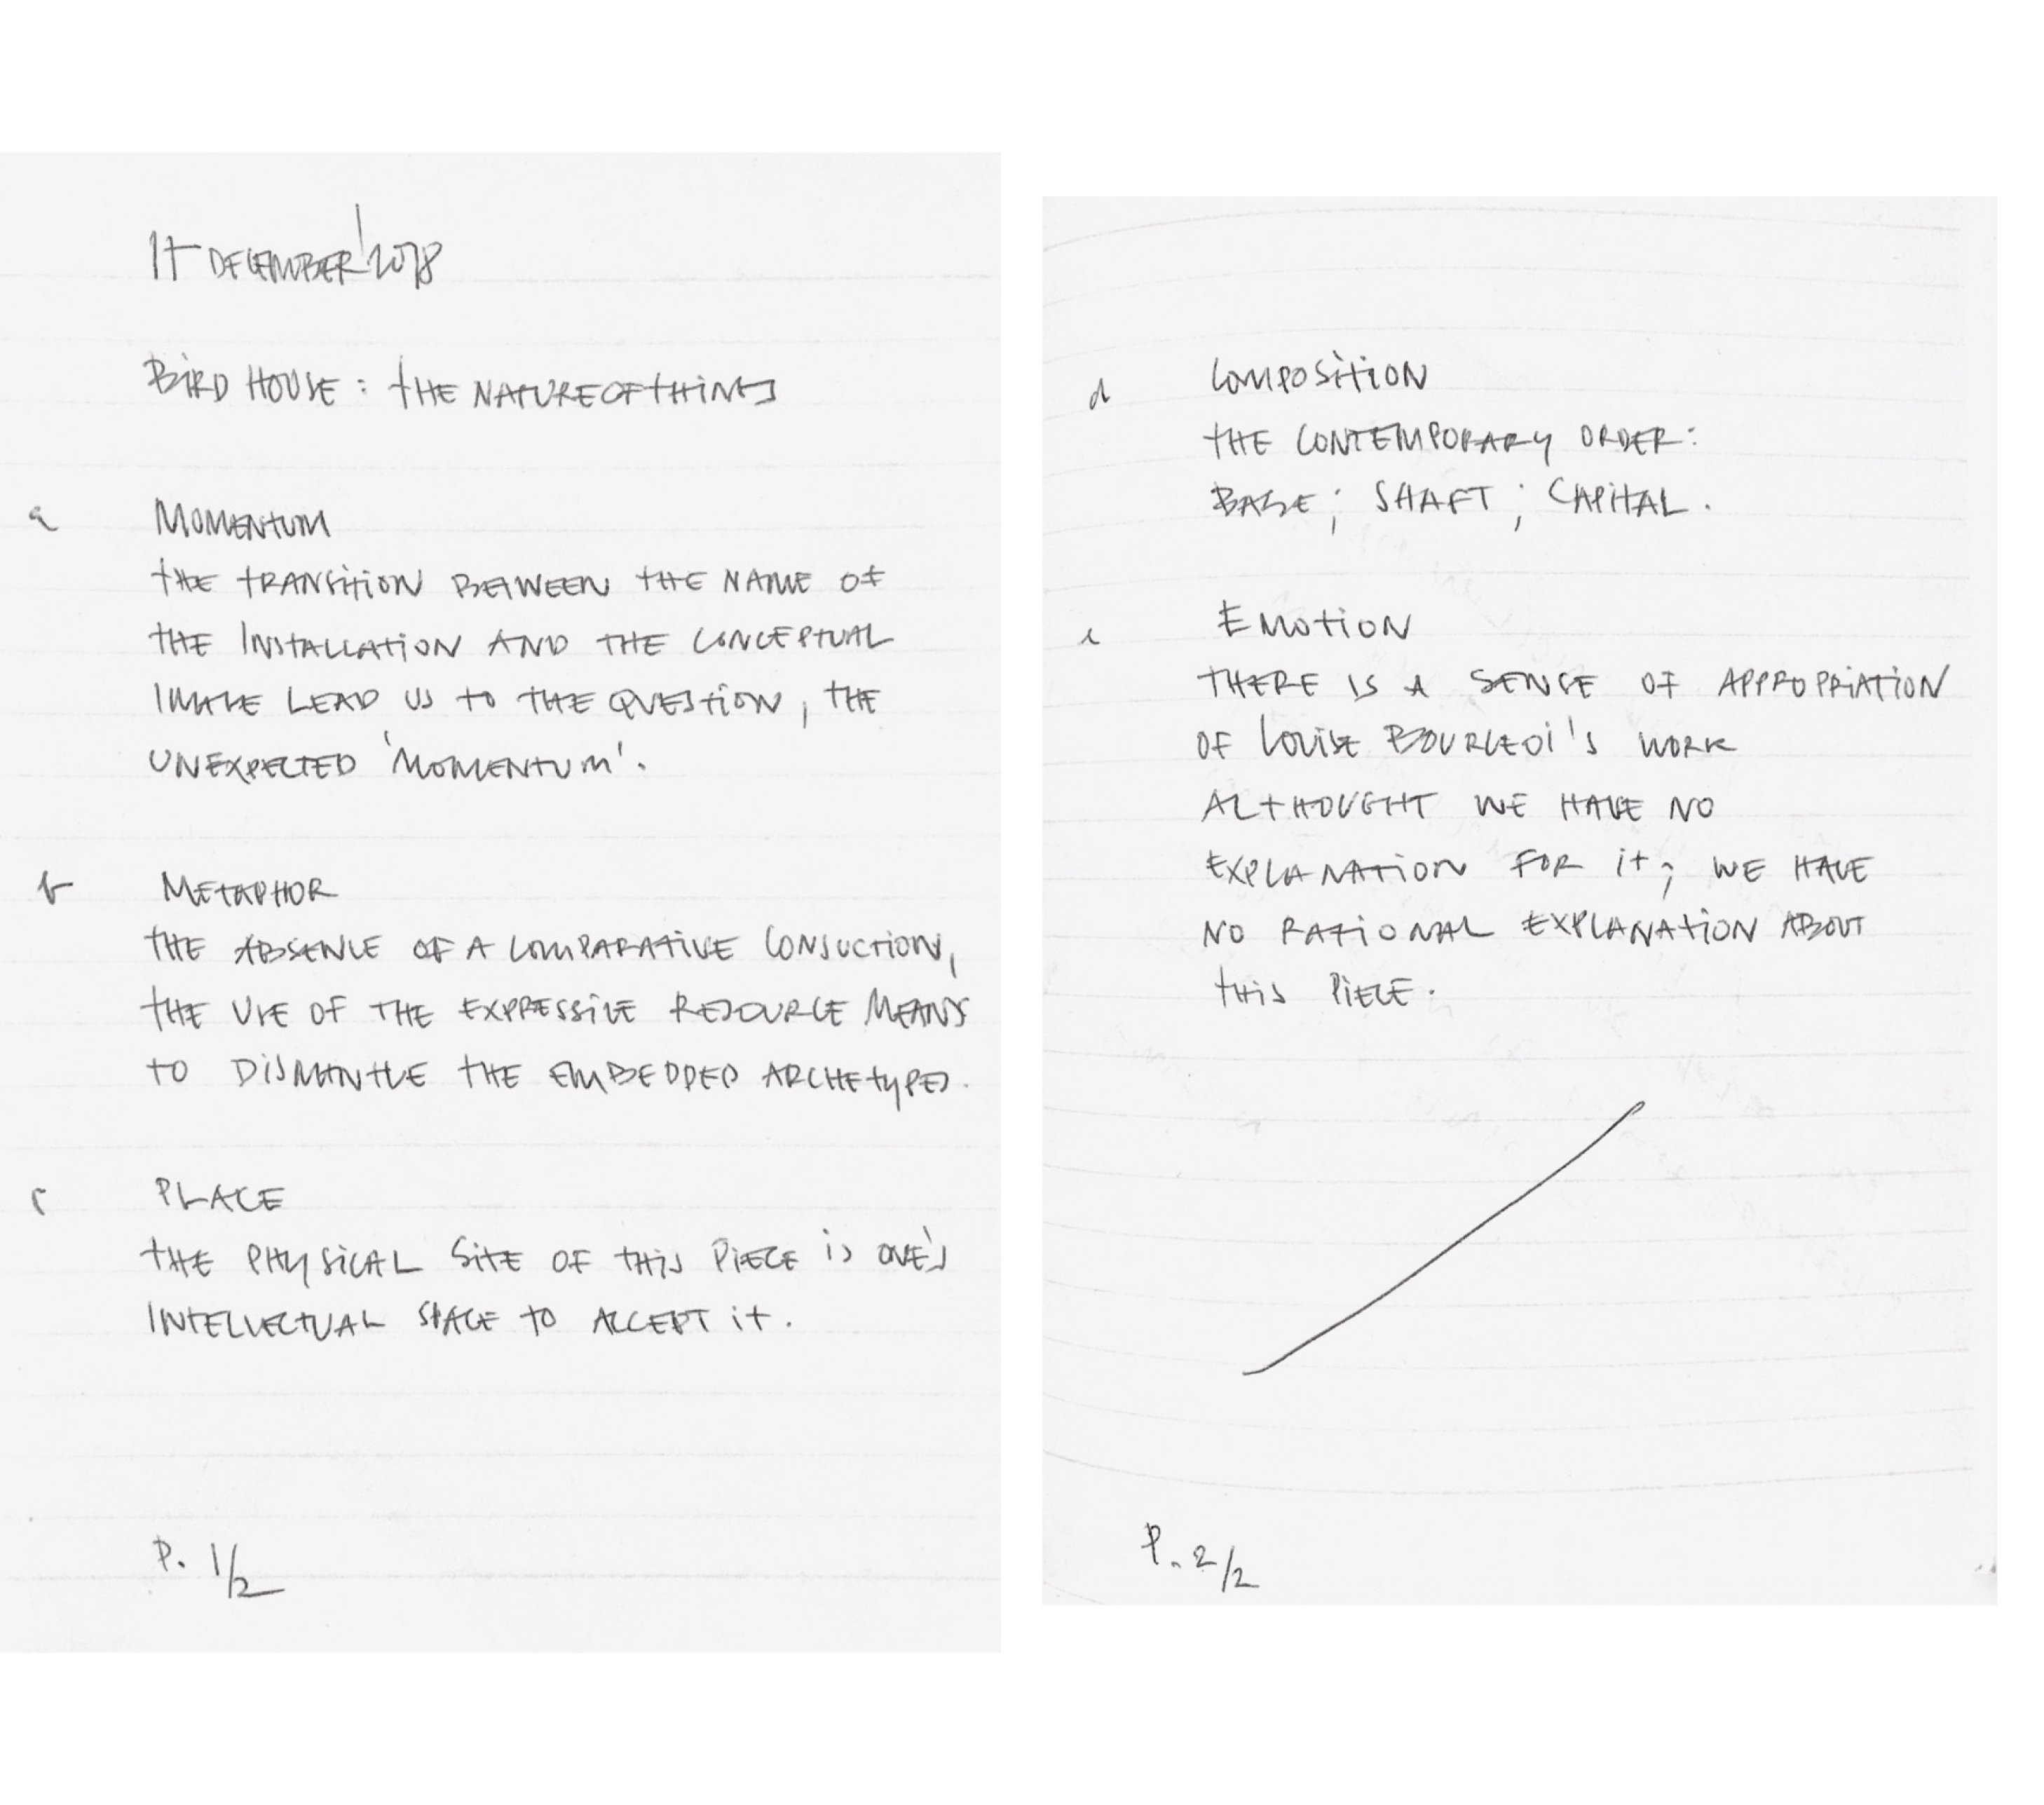 17 DECEMBER 2018
BIRD HOUSE : THE NATURE OF THINGS
a MOMENTUM
THE TRANSITION BETWEEN THE NAME OF
THE INSTALLATION AND THE CONCEPTUAL
IMAGE LEAD US TO THE QUESTION, THE
UNEXPECTED 'MOMENTUM'.
b METAPHOR
THE ABSENCE OF A COMPARATIVE CONJUCTION,
THE USE OF THE EXPRESSIVE RESOURCE MEANS
TO DISMANTLE THE EMBEDDED ARCHETYPES.
c PLACE
THE PHYSICAL SITE OF THIS PIECE IS ONE'S
INTELLECTUAL SPACE TO ACCEPT IT.
P. 1/2
d COMPOSITION
THE CONTEMPORARY ORDER:
BASE; SHAFT; CAPITAL.
e EMOTION
THERE IS A SENSE OF APPROPRIATION
OF LOUISE BOURGEOI'S WORK
ALTHOUGHT WE HAVE NO
EXPLANATION FOR IT; WE HAVE
NO RATIONAL EXPLANATION ABOUT
THIS PIECE.
P. 2/2